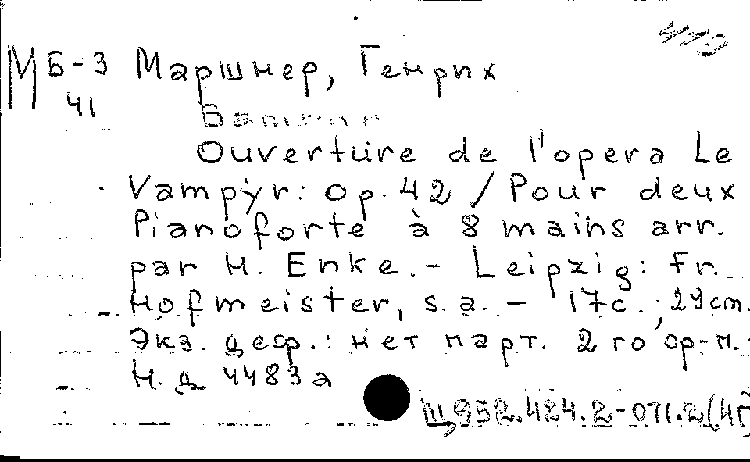 МБ-3 Маршнер, Генрих
41
Ouverture de l'opera Le
Vampyr: Op. 42 / Pour deux
Pianoforte à 8 mains arr.
par H. Enke. - Leipzig: Fr.
Hofmeister, s.a. - 17с.; 29cm.
Экз. деф.: нет парт. 2го ф-п.
Н.д 4483а
Щ952.424.2-071.2(4Г